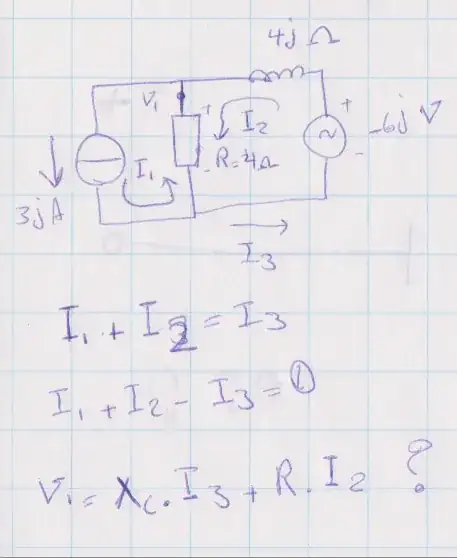 4j Ω
V₁
+
+
I₂
-6j V
I₁
- R=4Ω
-
3jA
I₃
I₁ + I₂ = I₃
I₁ + I₂ - I₃ = 0
V₁ = X꜀. I₃ + R. I₂ ?